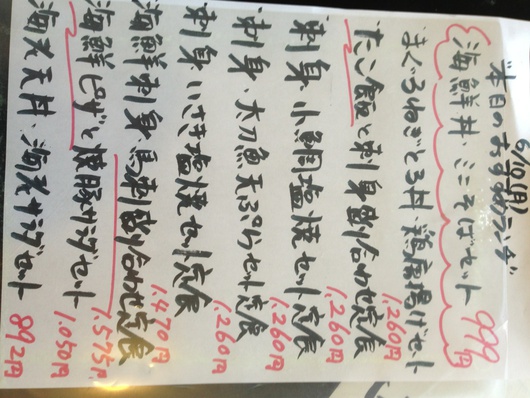 6/10(月)
本日のおすすめランチ
海鮮丼、ミニそばセット 999円
まぐろねぎとろ丼、鶏唐揚げセット 1,260円
たこ飯と刺身盛り合わせ定食 1,260円
刺身、小鯛塩焼セット定食 1,260円
刺身、太刀魚天ぷらセット定食 1,260円
刺身、いさき塩焼セット定食 1,470円
海鮮刺身、馬刺盛り合わせ定食 1,575円
海鮮ピザと焼豚サラダセット 1,050円
海老天丼、海老サラダセット 892円